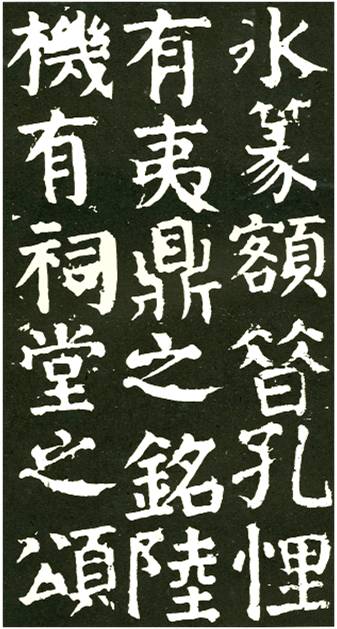 氷篆額昔孔悝
有夷鼎之銘陸
機有祠堂之頌